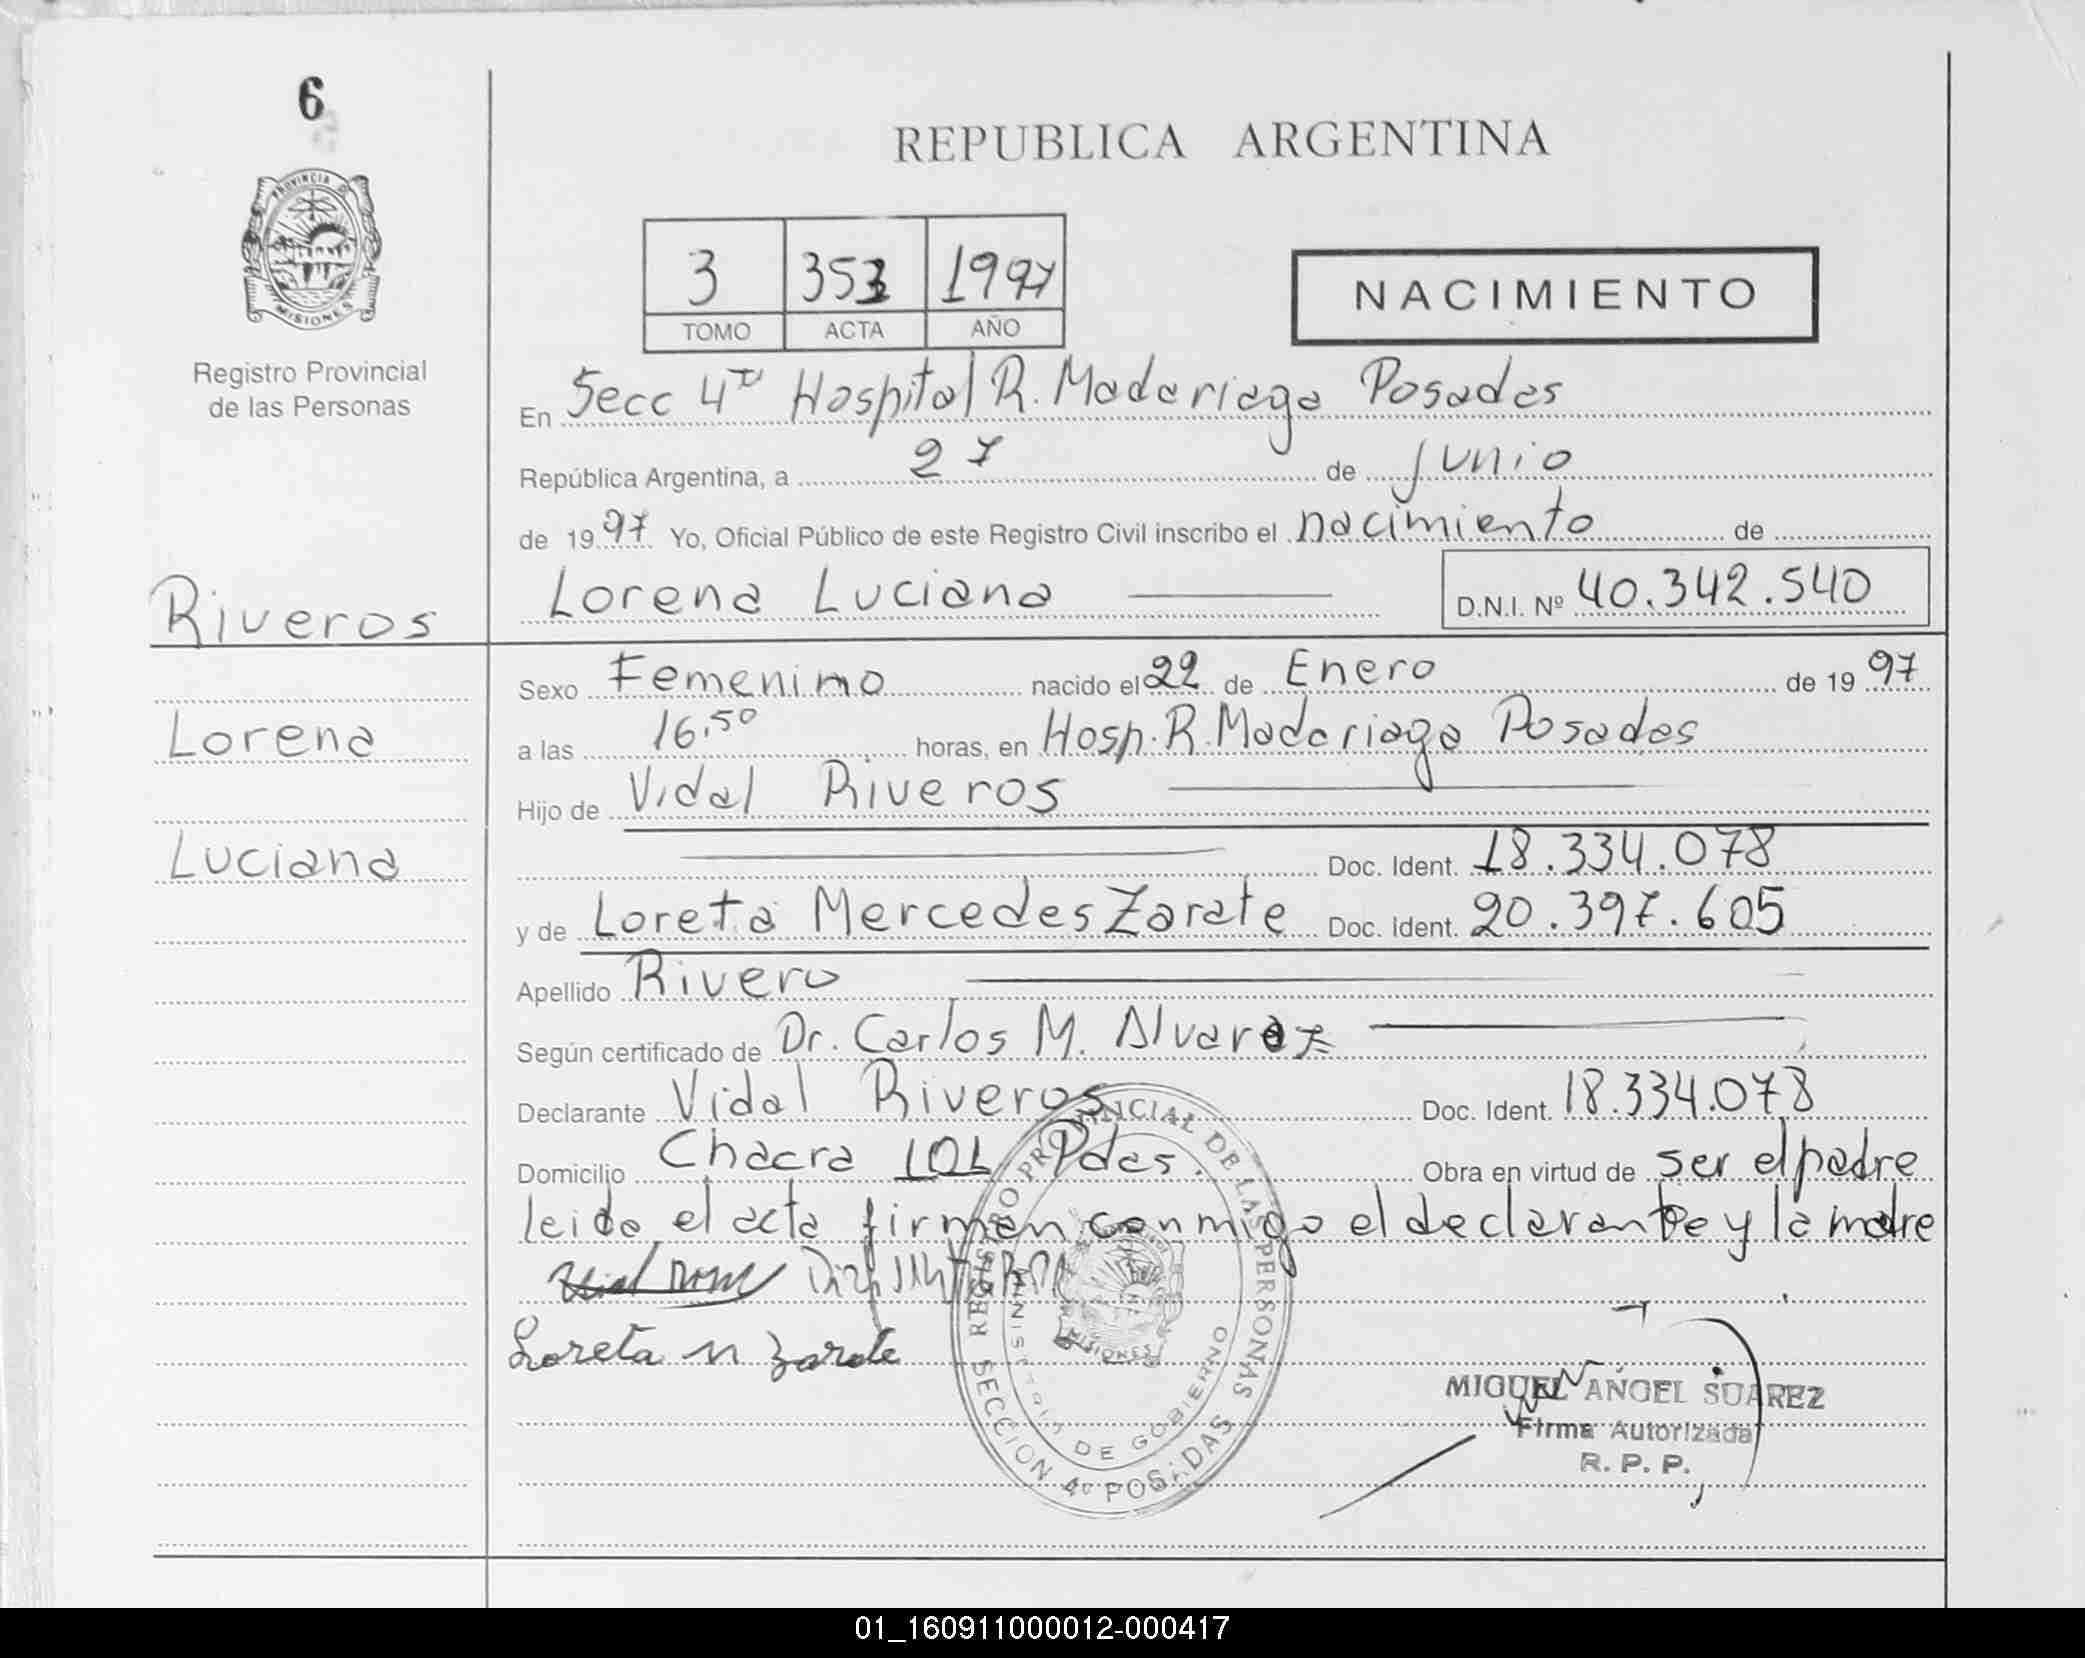 6
PROVINCIA D
MISIONES
Registro Provincial
de las Personas
Riveros
Lorena
Luciana
REPUBLICA ARGENTINA
3 353 1997
TOMO ACTA AÑO
NACIMIENTO
En Secc 4ta Hospital R. Madariaga Posadas
República Argentina, a 27 de Junio
de 1997 Yo, Oficial Público de este Registro Civil inscribo el nacimiento de
Lorena Luciana D.N.I. Nº 40.342.540
Sexo Femenino nacido el 22 de Enero de 1997
a las 16,50 horas, en Hosp. R. Madariaga Posadas
Hijo de Vidal Riveros
Doc. Ident. 18.334.078
y de Loreta Mercedes Zarate Doc. Ident. 20.397.605
Apellido Rivero
Según certificado de Dr. Carlos M. Alvarez
Declarante Vidal Riveros Doc. Ident. 18.334.078
Domicilio Chacra 101 Pdas. Obra en virtud de ser el padre
leida el acta firman conmigo el declarante y la madre
Loreta M Zarate
REGISTRO PROVINCIAL DE LAS PERSONAS
SECCION 4ª POSADAS
MINISTERIO DE GOBIERNO
MISIONES
MIGUEL ANGEL SUAREZ
Firma Autorizada
R. P. P.
01_160911000012-000417